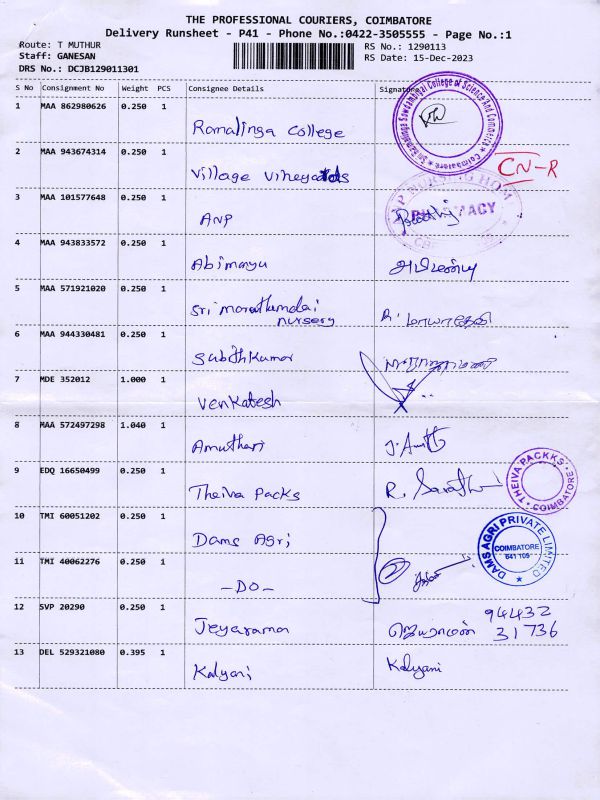 THE PROFESSIONAL COURIERS, COIMBATORE
Delivery Runsheet - P41 - Phone No.:0422-3505555 - Page No.:1
Route: T MUTHUR
RS No.: 1290113
Staff: GANESAN
RS Date: 15-Dec-2023
DRS No.: DCJB129011301
S No Consignment No Weight PCS Consignee Details Signature
1 MAA 862980626 0.250 1 Ramalinga College
CN-R
2 MAA 943674314 0.250 1 Village Vineyards
3 MAA 101577648 0.250 1 ANP
PHARMACY
4 MAA 943833572 0.250 1 Abimanyu அபிமன்யு
5 MAA 571921020 0.250 1 Sri marathandai
nursery
6 MAA 944330481 0.250 1 SubithKumar
7 MDE 352012 1.000 1 Venkatesh
8 MAA 572497298 1.040 1 Amuthari
9 EDQ 16650499 0.250 1 Theiva Packs R. Sarathi
THEIVA PACKKS COIMBATORE
10 TMI 60051202 0.250 1 Dams Agri
DAMS AGRI PRIVATE LIMITED
COIMBATORE
641 109
11 TMI 40062276 0.250 1 -DO-
12 SVP 20290 0.250 1 Jeyarama ஜெயராமன் 94432
31736
13 DEL 529321080 0.395 1 Kalyani Kalyani